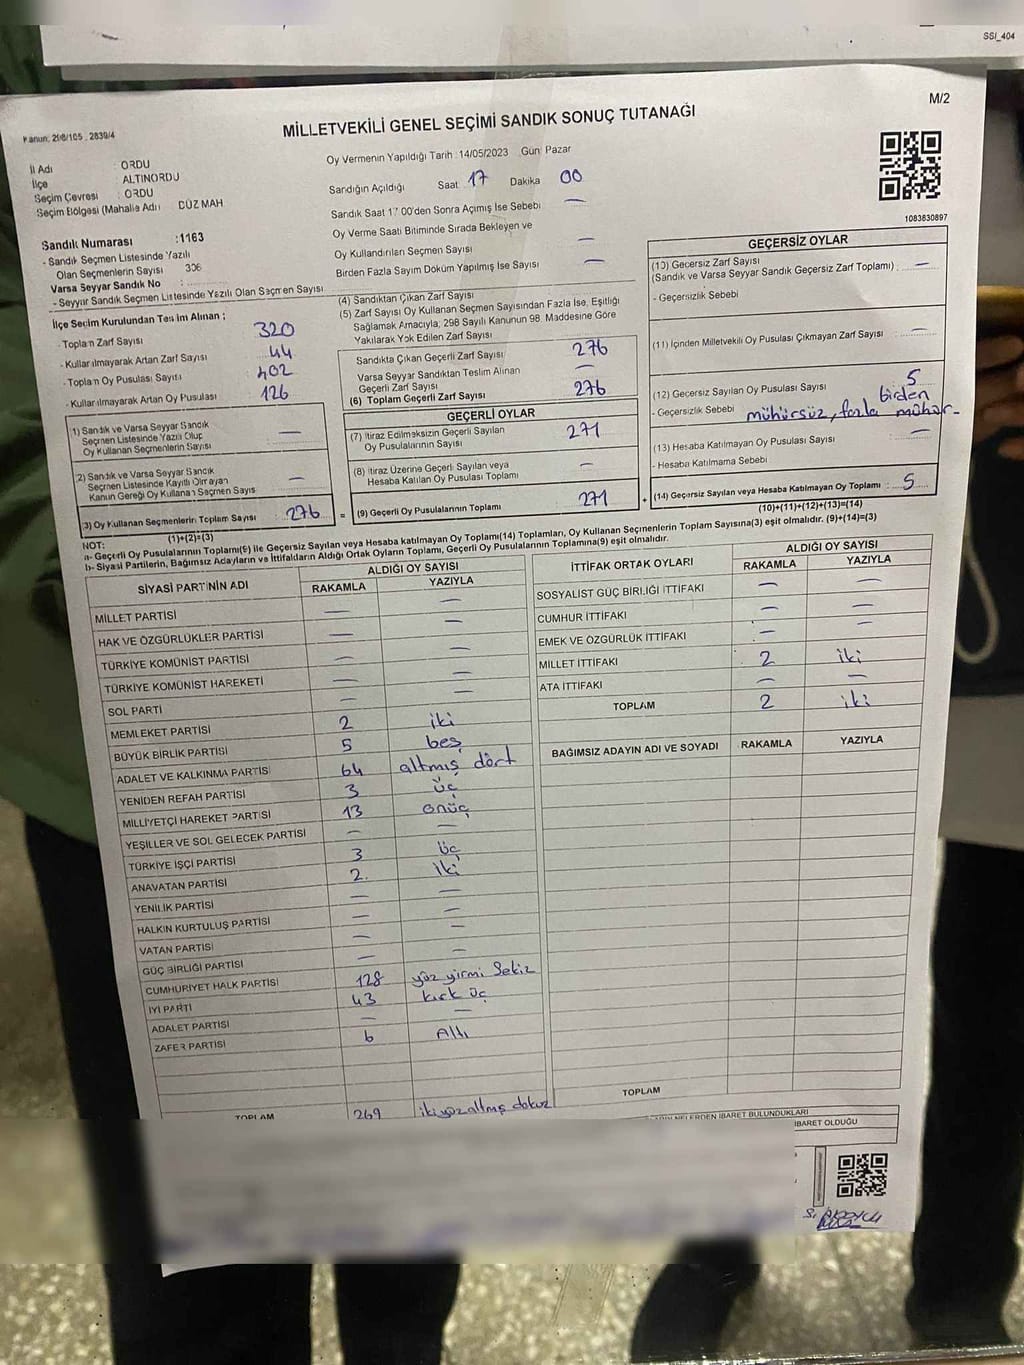 SSI_404
M/2
Kanun: 298/105 , 2839/4
MİLLETVEKİLİ GENEL SEÇİMİ SANDIK SONUÇ TUTANAĞI
İl Adı : ORDU
İlçe : ALTINORDU
Seçim Çevresi : ORDU
Seçim Bölgesi (Mahalle Adı) DÜZ MAH
Oy Vermenin Yapıldığı Tarih : 14/05/2023 Gün: Pazar
Sandığın Açıldığı Saat 17 Dakika 00
Sandık Saat 17 00'den Sonra Açılmış İse Sebebi —
Oy Verme Saati Bitiminde Sırada Bekleyen ve
Oy Kullandırılan Seçmen Sayısı —
Birden Fazla Sayım Döküm Yapılmış İse Sayısı —
1083830897
Sandık Numarası :1163
- Sandık Seçmen Listesinde Yazılı
Olan Seçmenlerin Sayısı
Varsa Seyyar Sandık No
- Seyyar Sandık Seçmen Listesinde Yazılı Olan Seçmen Sayısı
İlçe Seçim Kurulundan Teslim Alınan ;
- Toplam Zarf Sayısı 320
- Kullanılmayarak Artan Zarf Sayısı 44
- Toplam Oy Pusulası Sayısı 402
- Kullanılmayarak Artan Oy Pusulası 126
1) Sandık ve Varsa Seyyar Sandık
Seçmen Listesinde Yazılı Olup
Oy Kullanan Seçmenlerin Sayısı —
2) Sandık ve Varsa Seyyar Sandık
Seçmen Listesinde Kayıtlı Olmayan
Kanun Gereği Oy Kullanan Seçmen Sayıs —
3) Oy Kullanan Seçmenlerin Toplam Sayısı : 276 =
(1)+(2)=(3)
(4) Sandıktan Çıkan Zarf Sayısı
(5) Zarf Sayısı Oy Kullanan Seçmen Sayısından Fazla İse, Eşitliği
Sağlamak Amacıyla, 298 Sayılı Kanunun 98. Maddesine Göre
Yakılarak Yok Edilen Zarf Sayısı
Sandıkta Çıkan Geçerli Zarf Sayısı 276
Varsa Seyyar Sandıktan Teslim Alınan
Geçerli Zarf Sayısı —
(6) Toplam Geçerli Zarf Sayısı 276
GEÇERLİ OYLAR
(7) İtiraz Edilmeksizin Geçerli Sayılan
Oy Pusulalarının Sayısı 271
(8) İtiraz Üzerine Geçerli Sayılan veya
Hesaba Katılan Oy Pusulası Toplamı —
(9) Geçerli Oy Pusulalarının Toplamı 271 +
GEÇERSİZ OYLAR
(10) Geçersiz Zarf Sayısı
(Sandık ve Varsa Seyyar Sandık Geçersiz Zarf Toplamı) : —
- Geçersizlik Sebebi
(11) İçinden Milletvekili Oy Pusulası Çıkmayan Zarf Sayısı —
(12) Geçersiz Sayılan Oy Pusulası Sayısı 5
- Geçersizlik Sebebi mühürsüz, birden fazla mühür
(13) Hesaba Katılmayan Oy Pusulası Sayısı —
- Hesaba Katılmama Sebebi
(14) Geçersiz Sayılan veya Hesaba Katılmayan Oy Toplamı : 5
(10)+(11)+(12)+(13)=(14)
NOT:
a- Geçerli Oy Pusulalarının Toplamı(9) ile Geçersiz Sayılan veya Hesaba katılmayan Oy Toplamı(14) Toplamları, Oy Kullanan Seçmenlerin Toplam Sayısına(3) eşit olmalıdır. (9)+(14)=(3)
b- Siyasi Partilerin, Bağımsız Adayların ve İttifakların Aldığı Ortak Oyların Toplamı, Geçerli Oy Pusulalarının Toplamına(9) eşit olmalıdır.
SİYASİ PARTİNİN ADI ALDIĞI OY SAYISI
RAKAMLA YAZIYLA
MİLLET PARTİSİ — —
HAK VE ÖZGÜRLÜKLER PARTİSİ — —
TÜRKİYE KOMÜNİST PARTİSİ — —
TÜRKİYE KOMÜNİST HAREKETİ — —
SOL PARTİ — —
MEMLEKET PARTİSİ 2 iki
BÜYÜK BİRLİK PARTİSİ 5 beş
ADALET VE KALKINMA PARTİSİ 64 altmış dört
YENİDEN REFAH PARTİSİ 3 üç
MİLLİYETÇİ HAREKET PARTİSİ 13 onüç
YEŞİLLER VE SOL GELECEK PARTİSİ — —
TÜRKİYE İŞÇİ PARTİSİ 3 üç
ANAVATAN PARTİSİ 2. iki
YENİLİK PARTİSİ — —
HALKIN KURTULUŞ PARTİSİ — —
VATAN PARTİSİ — —
GÜÇ BİRLİĞİ PARTİSİ — —
CUMHURİYET HALK PARTİSİ 128 yüz yirmi sekiz
İYİ PARTİ 43 kırk üç
ADALET PARTİSİ — —
ZAFER PARTİSİ 6 Altı
TOPLAM 269 ikiyüzaltmış dokuz
İTTİFAK ORTAK OYLARI ALDIĞI OY SAYISI
RAKAMLA YAZIYLA
SOSYALİST GÜÇ BİRLİĞİ İTTİFAKI — —
CUMHUR İTTİFAKI — —
EMEK VE ÖZGÜRLÜK İTTİFAKI — —
MİLLET İTTİFAKI 2 iki
ATA İTTİFAKI — —
TOPLAM 2 iki
BAĞIMSIZ ADAYIN ADI VE SOYADI RAKAMLA YAZIYLA
TOPLAM
İBARET BULUNDUKLARI
İBARET OLDUĞU